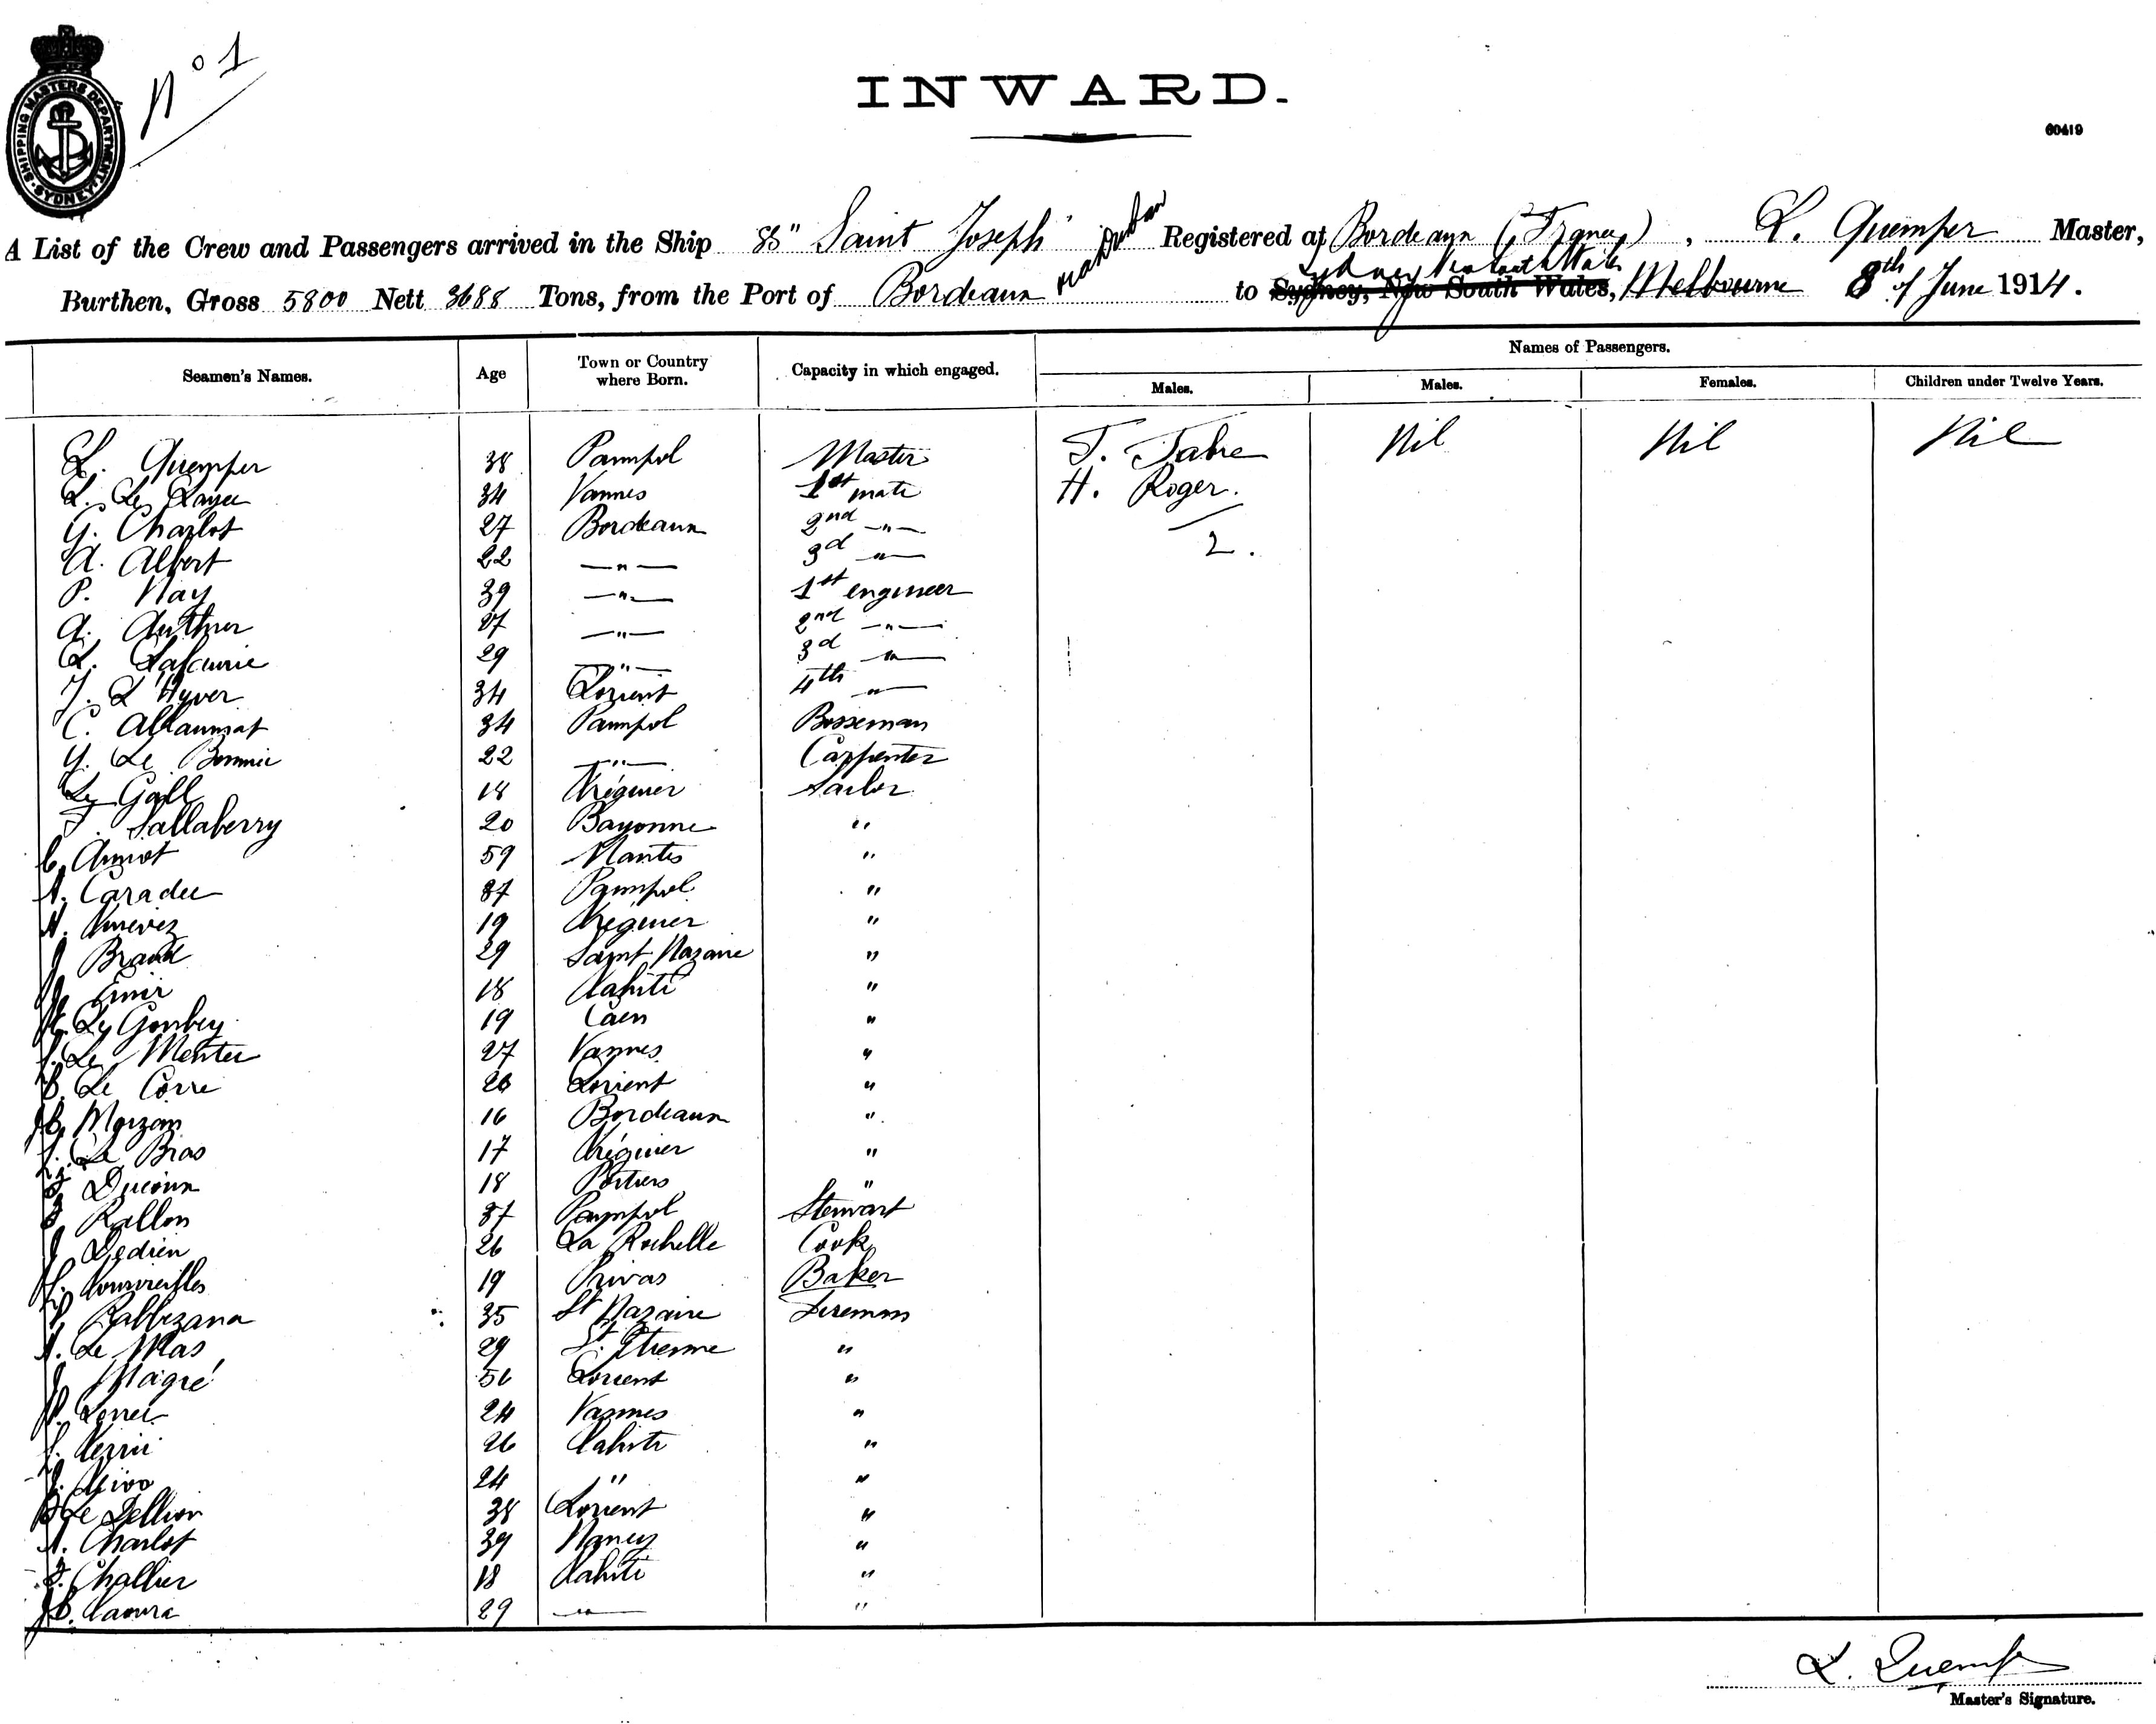 SHIPPING MASTERS DEPARTMENT. SYDNEY
N° 1
INWARD.
60419
A List of the Crew and Passengers arrived in the Ship SS "Saint Joseph" Registered at Bordeaux (France), L. Quemper Master,
Burthen, Gross 5800 Nett 3688 Tons, from the Port of Bordeaux to Sydney, New South Wales, Sydney New South Wales Melbourne 8th of June 1914.
Seamen's Names. Age Town or Country where Born. Capacity in which engaged. Names of Passengers.
Males. Males. Females. Children under Twelve Years.
L. Quemper 38 Paimpol Master T. Fabre Nil Nil Nil
L. Le 34 Vannes 1st mate H. Roger.
G. Charlot 27 Bordeaux 2nd —"—
A. Albert 22 —"— 3d —"— 2.
P. Nay 39 —"— 1st engineer
A. 27 —"— 2nd —"—
L. Lafaurie 29 —"— 3d —"—
J. L'Hyver 34 Lorient 4th —"—
C. Allaumat 34 Paimpol Bosseman
Y. Le 22 —"— Carpenter
Le Gall 18 Tréguier Sailor
Sallaberry 20 Bayonne "
C. Amiot 59 Nantes "
A. Caradec 37 Paimpol "
A. 19 Tréguier "
J Braud 29 Saint Nazaire "
18 Tahiti "
Le 19 Caen "
Le Menter 27 Vannes "
Le Corre 26 Lorient "
16 Bordeaux "
Le Bras 17 Tréguier "
18 Poitiers "
Rallon 37 Paimpol Stewart
J Dedieu 26 La Rochelle Cook
19 Privas Baker
Rabbezana 35 St Nazaire Firemans
A. Le Mas 29 St. Etienne "
J Magré 56 Lorient "
24 Vannes "
26 Tahiti "
24 " "
Le Dellion 38 Lorient "
A. Charlot 39 Nancy "
Challier 18 Tahiti "
29 —"— "
L. Quemper
Master's Signature.